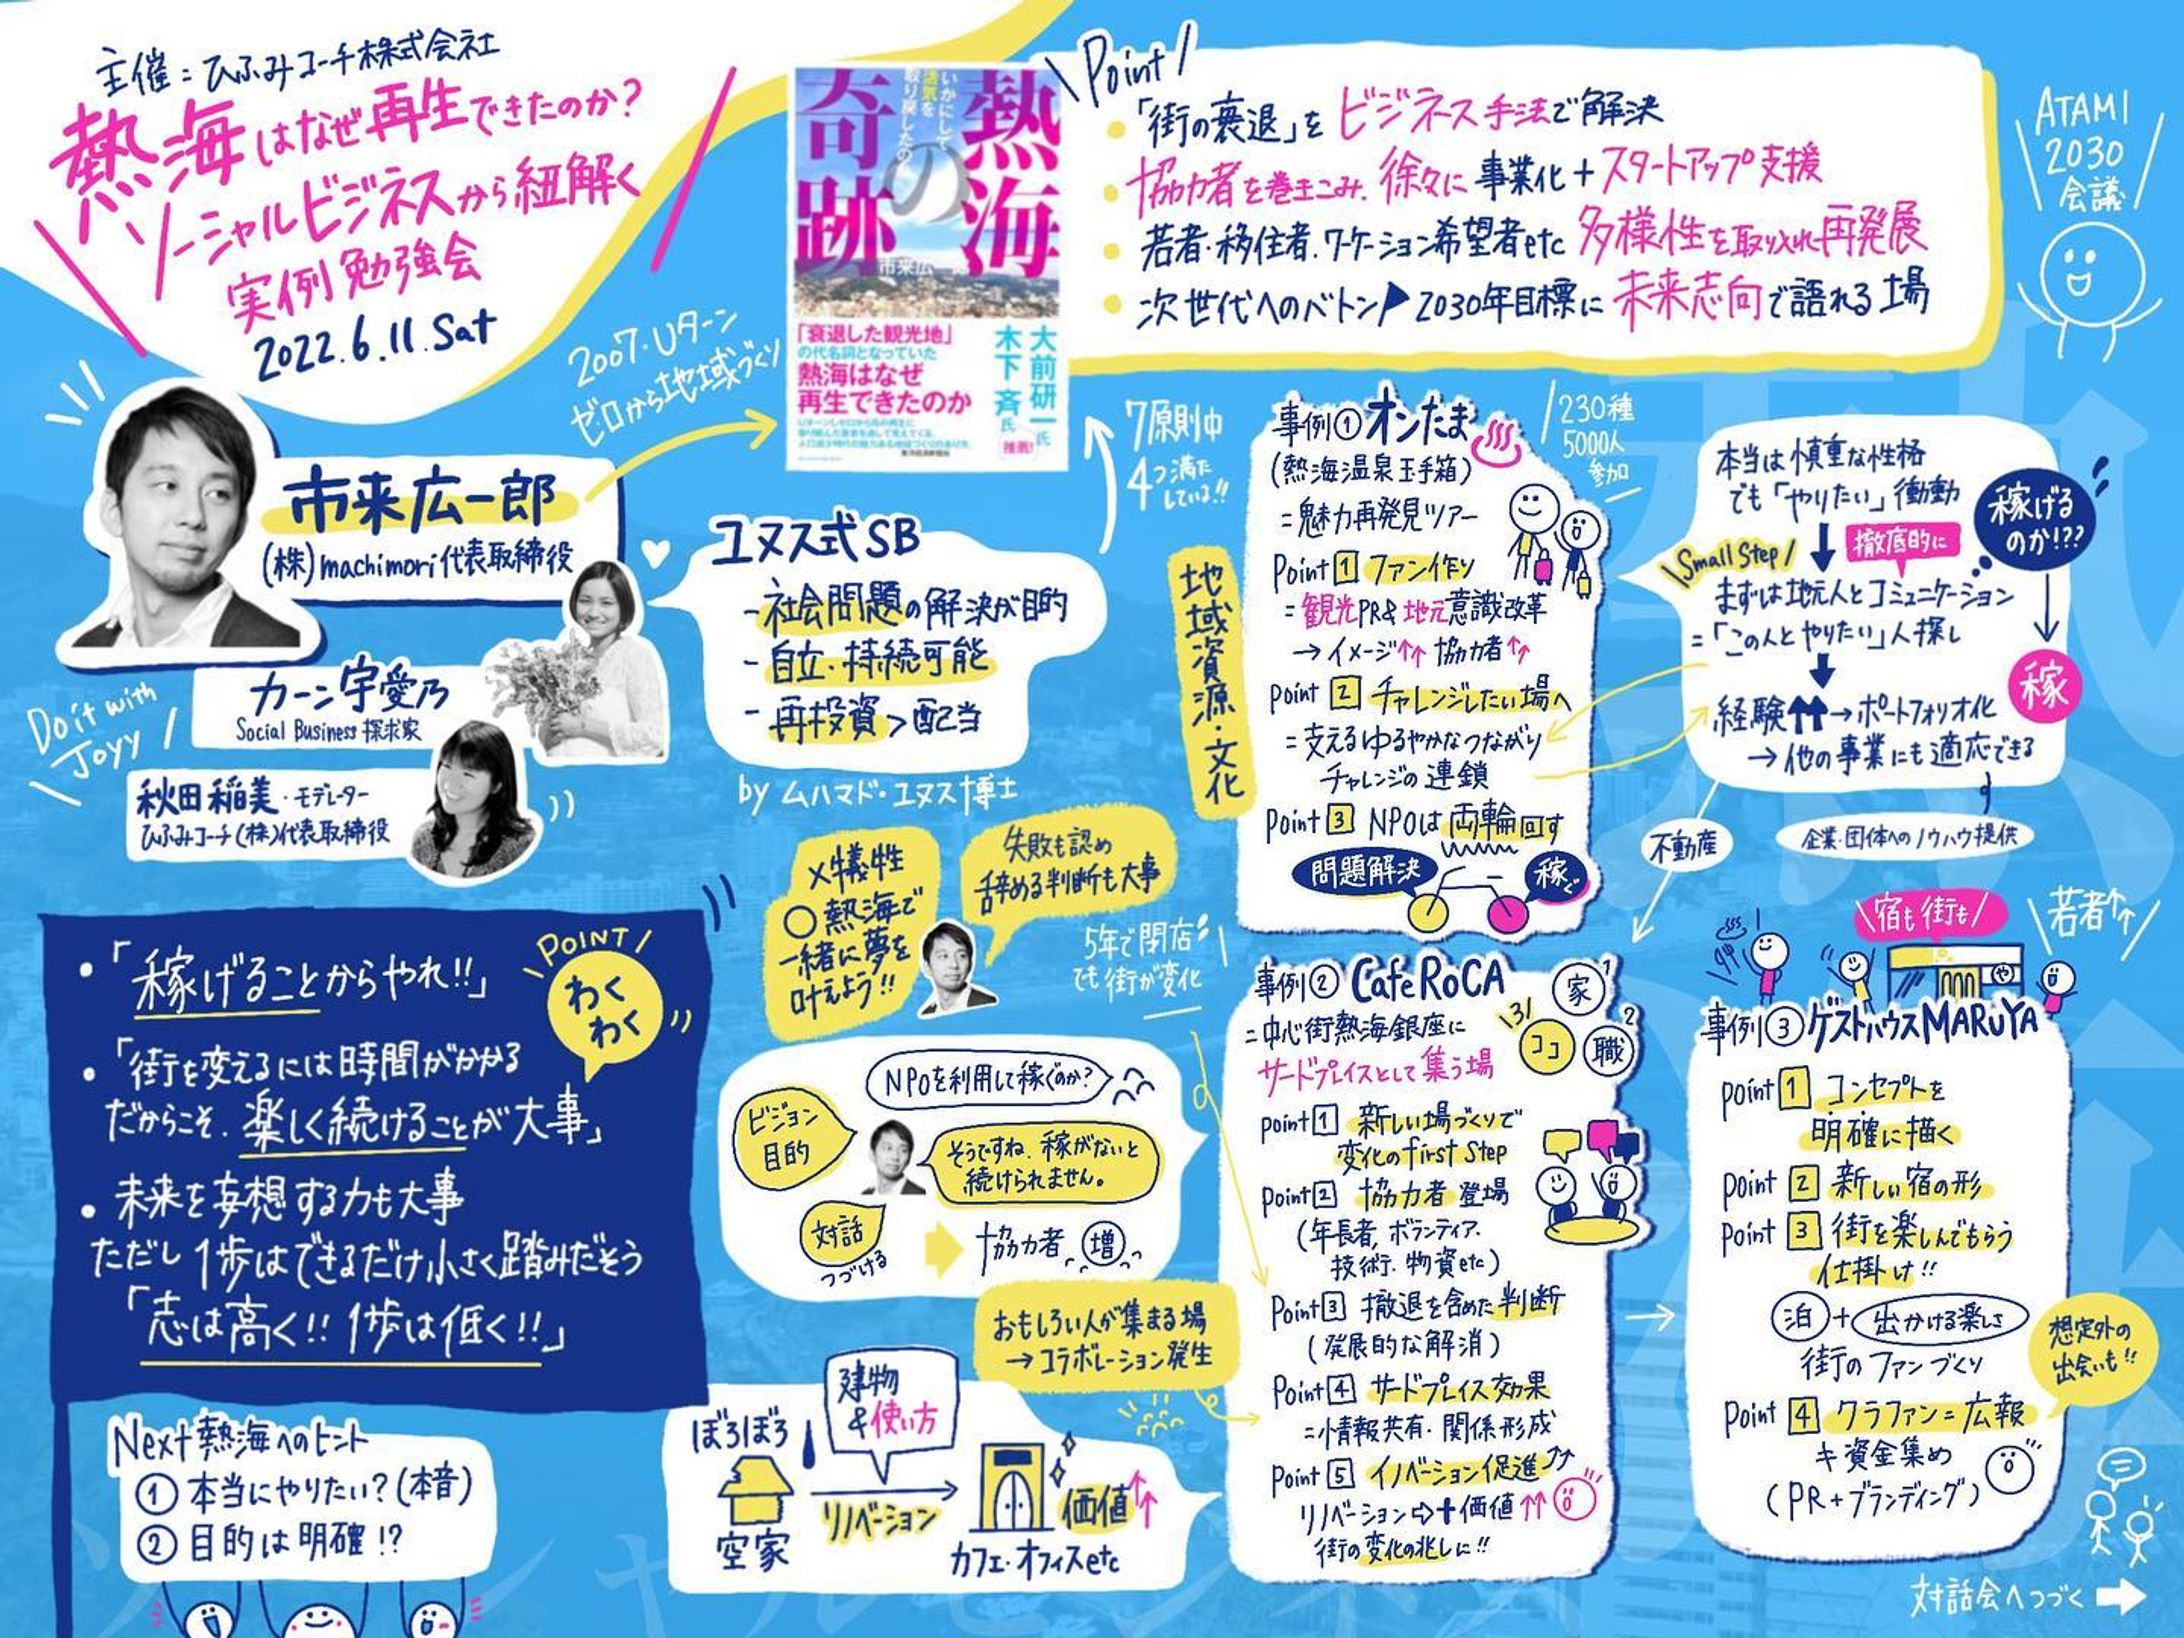 主催：ひふみコーチ株式会社
熱海はなぜ再生できたのか？
ソーシャルビジネスから紐解く
実例勉強会
2022.6.11.Sat
2007.Uターン
ゼロから地域づくり
市来広一郎
(株)machimori代表取締役
カーン宇愛乃
Social Business探求家
Do it with
Joyy
秋田稲美・モデレーター
ひふみコーチ(株)代表取締役
熱海の奇跡
いかにして
活気を
取り戻したのか
市来広一郎
「衰退した観光地」
の代名詞となっていた
熱海はなぜ
再生できたのか
大前研一氏
木下斉氏
推薦!
Point
・「街の衰退」をビジネス手法で解決
・協力者を巻きこみ、徐々に事業化＋スタートアップ支援
・若者・移住者・ワーケーション希望者etc 多様性を取り入れ再発展
・次世代へのバトン 2030年目標に未来志向で語れる場
ATAMI
2030
会議
ユヌス式SB
-社会問題の解決が目的
-自立・持続可能
-再投資＞配当
by ムハマド・ユヌス博士
7原則中
4つ満た
している!!
地域資源・文化
事例①オンたま
(熱海温泉玉手箱)
=魅力再発見ツアー
Point 1 ファン作り
=観光PR&地元意識改革
→イメージ↑↑ 協力者↑↑
Point 2 チャレンジしたい場へ
=支えるゆるやかなつながり
チャレンジの連鎖
Point 3 NPOは両輪回す
問題解決
稼ぐ
230種
5000人
参加
本当は慎重な性格
でも「やりたい」衝動
稼げる
のか!??
Small Step
徹底的に
まずは地元人とコミュニケーション
=「この人とやりたい」人探し
稼
経験↑↑→ポートフォリオ化
→他の事業にも適応できる
企業・団体へのノウハウ提供
不動産
×犠牲
○熱海で
一緒に夢を
叶えよう!!
失敗も認め
辞める判断も大事
5年で閉店
でも街が変化
・「稼げることからやれ!!」
POINT
わく
わく
・「街を変えるには時間がかかる
だからこそ、楽しく続けることが大事」
・未来を妄想する力も大事
ただし1歩はできるだけ小さく踏みだそう
「志は高く!! 1歩は低く!!」
Next熱海へのヒント
①本当にやりたい?(本音)
②目的は明確!?
NPOを利用して稼ぐのか?
ビジョン
目的
そうですね、稼がないと
続けられません。
対話
つづける
協力者 増
おもしろい人が集まる場
→コラボレーション発生
ぼろぼろ
空家
建物
&使い方
リノベーション
価値↑↑
カフェ・オフィスetc
事例②Cafe RoCA
=中心街熱海銀座に
サードプレイスとして集う場
1
家
2
職
3
ココ
Point 1 新しい場づくりで
変化のfirst Step
Point 2 協力者登場
(年長者、ボランティア、
技術、物資etc)
Point 3 撤退を含めた判断
(発展的な解消)
Point 4 サードプレイス効果
=情報共有・関係形成
Point 5 イノベーション促進↑↑
リノベーション⇨＋価値↑↑
街の変化の兆しに!!
宿も街も
若者↑↑
や
事例③ゲストハウスMARUYA
Point 1 コンセプトを
明確に描く
Point 2 新しい宿の形
Point 3 街を楽しんでもらう
仕掛け!!
泊＋出かける楽しさ
街のファンづくり
想定外の
出会いも!!
Point 4 クラファン=広報
≠資金集め
(PR+ブランディング)
対話会へつづく
熱海
ソーシャルビジネス